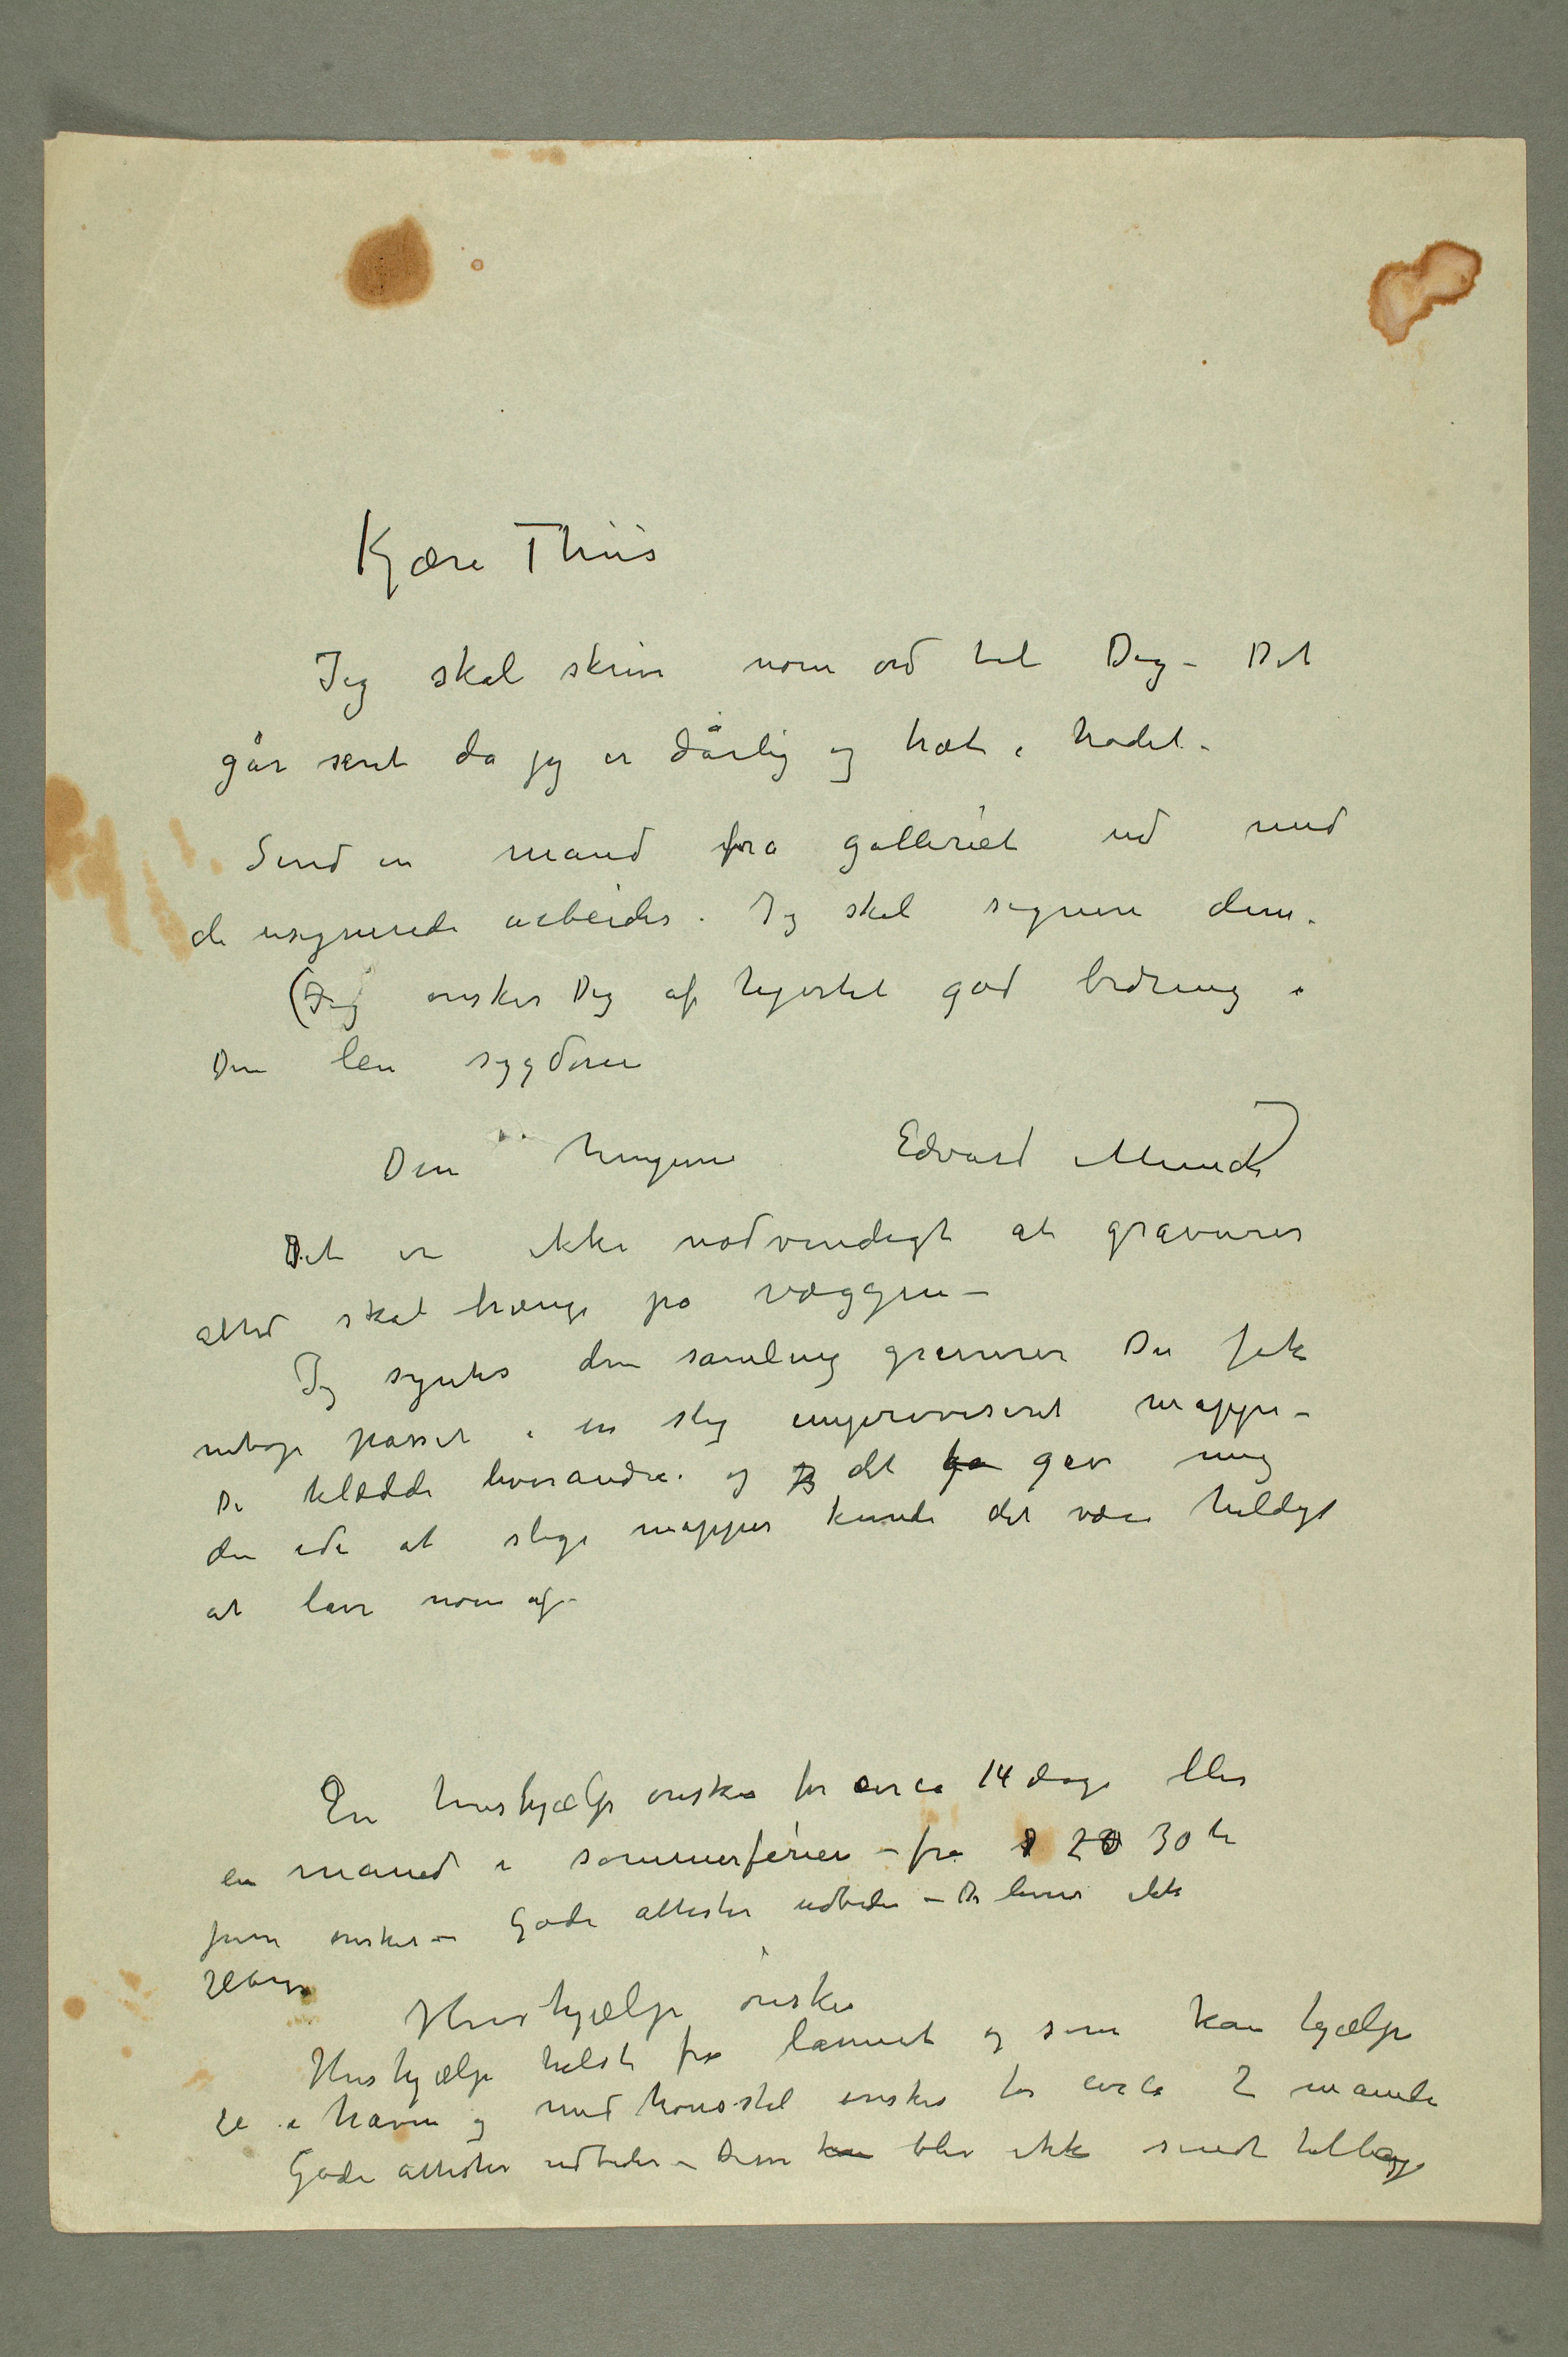 Kjære Thiis
Jeg skal skrive noen ord til Dig – Det
går sent da jeg er dårlig og træt i hodet.
Send en mand fra galleriet ud med
de usignerede arbeider. Jeg skal signere dem.
(Jeg ønsker Dig af hjertet god bedring i
Din lei sygdom
Din hengivne Edvard Munch
Det er ikke nødvendigt at gravurer
altid skal hænge på væggen –
Jeg syntes den samling gravurer Du fik
netop passet i en slig improviseret mappe –
De klædde hverandre. og jeg det ga gav mig
den ide at slige mapper kunde det være heldigt
at lave noen af –
En hushjælp ønskes for circa 14 dage eller
en måned i sommerferien – fra 30te
juni ønskes – Gode attester udbedes – De ikke
Hushjælp ønskes
Hushjælp helst fra lannet og som kan hjælpe
i haven og med hønsstel ønskes for circa 2 måneder
Gode attester udbedes – Disse kan blir ikke sendt tilbage